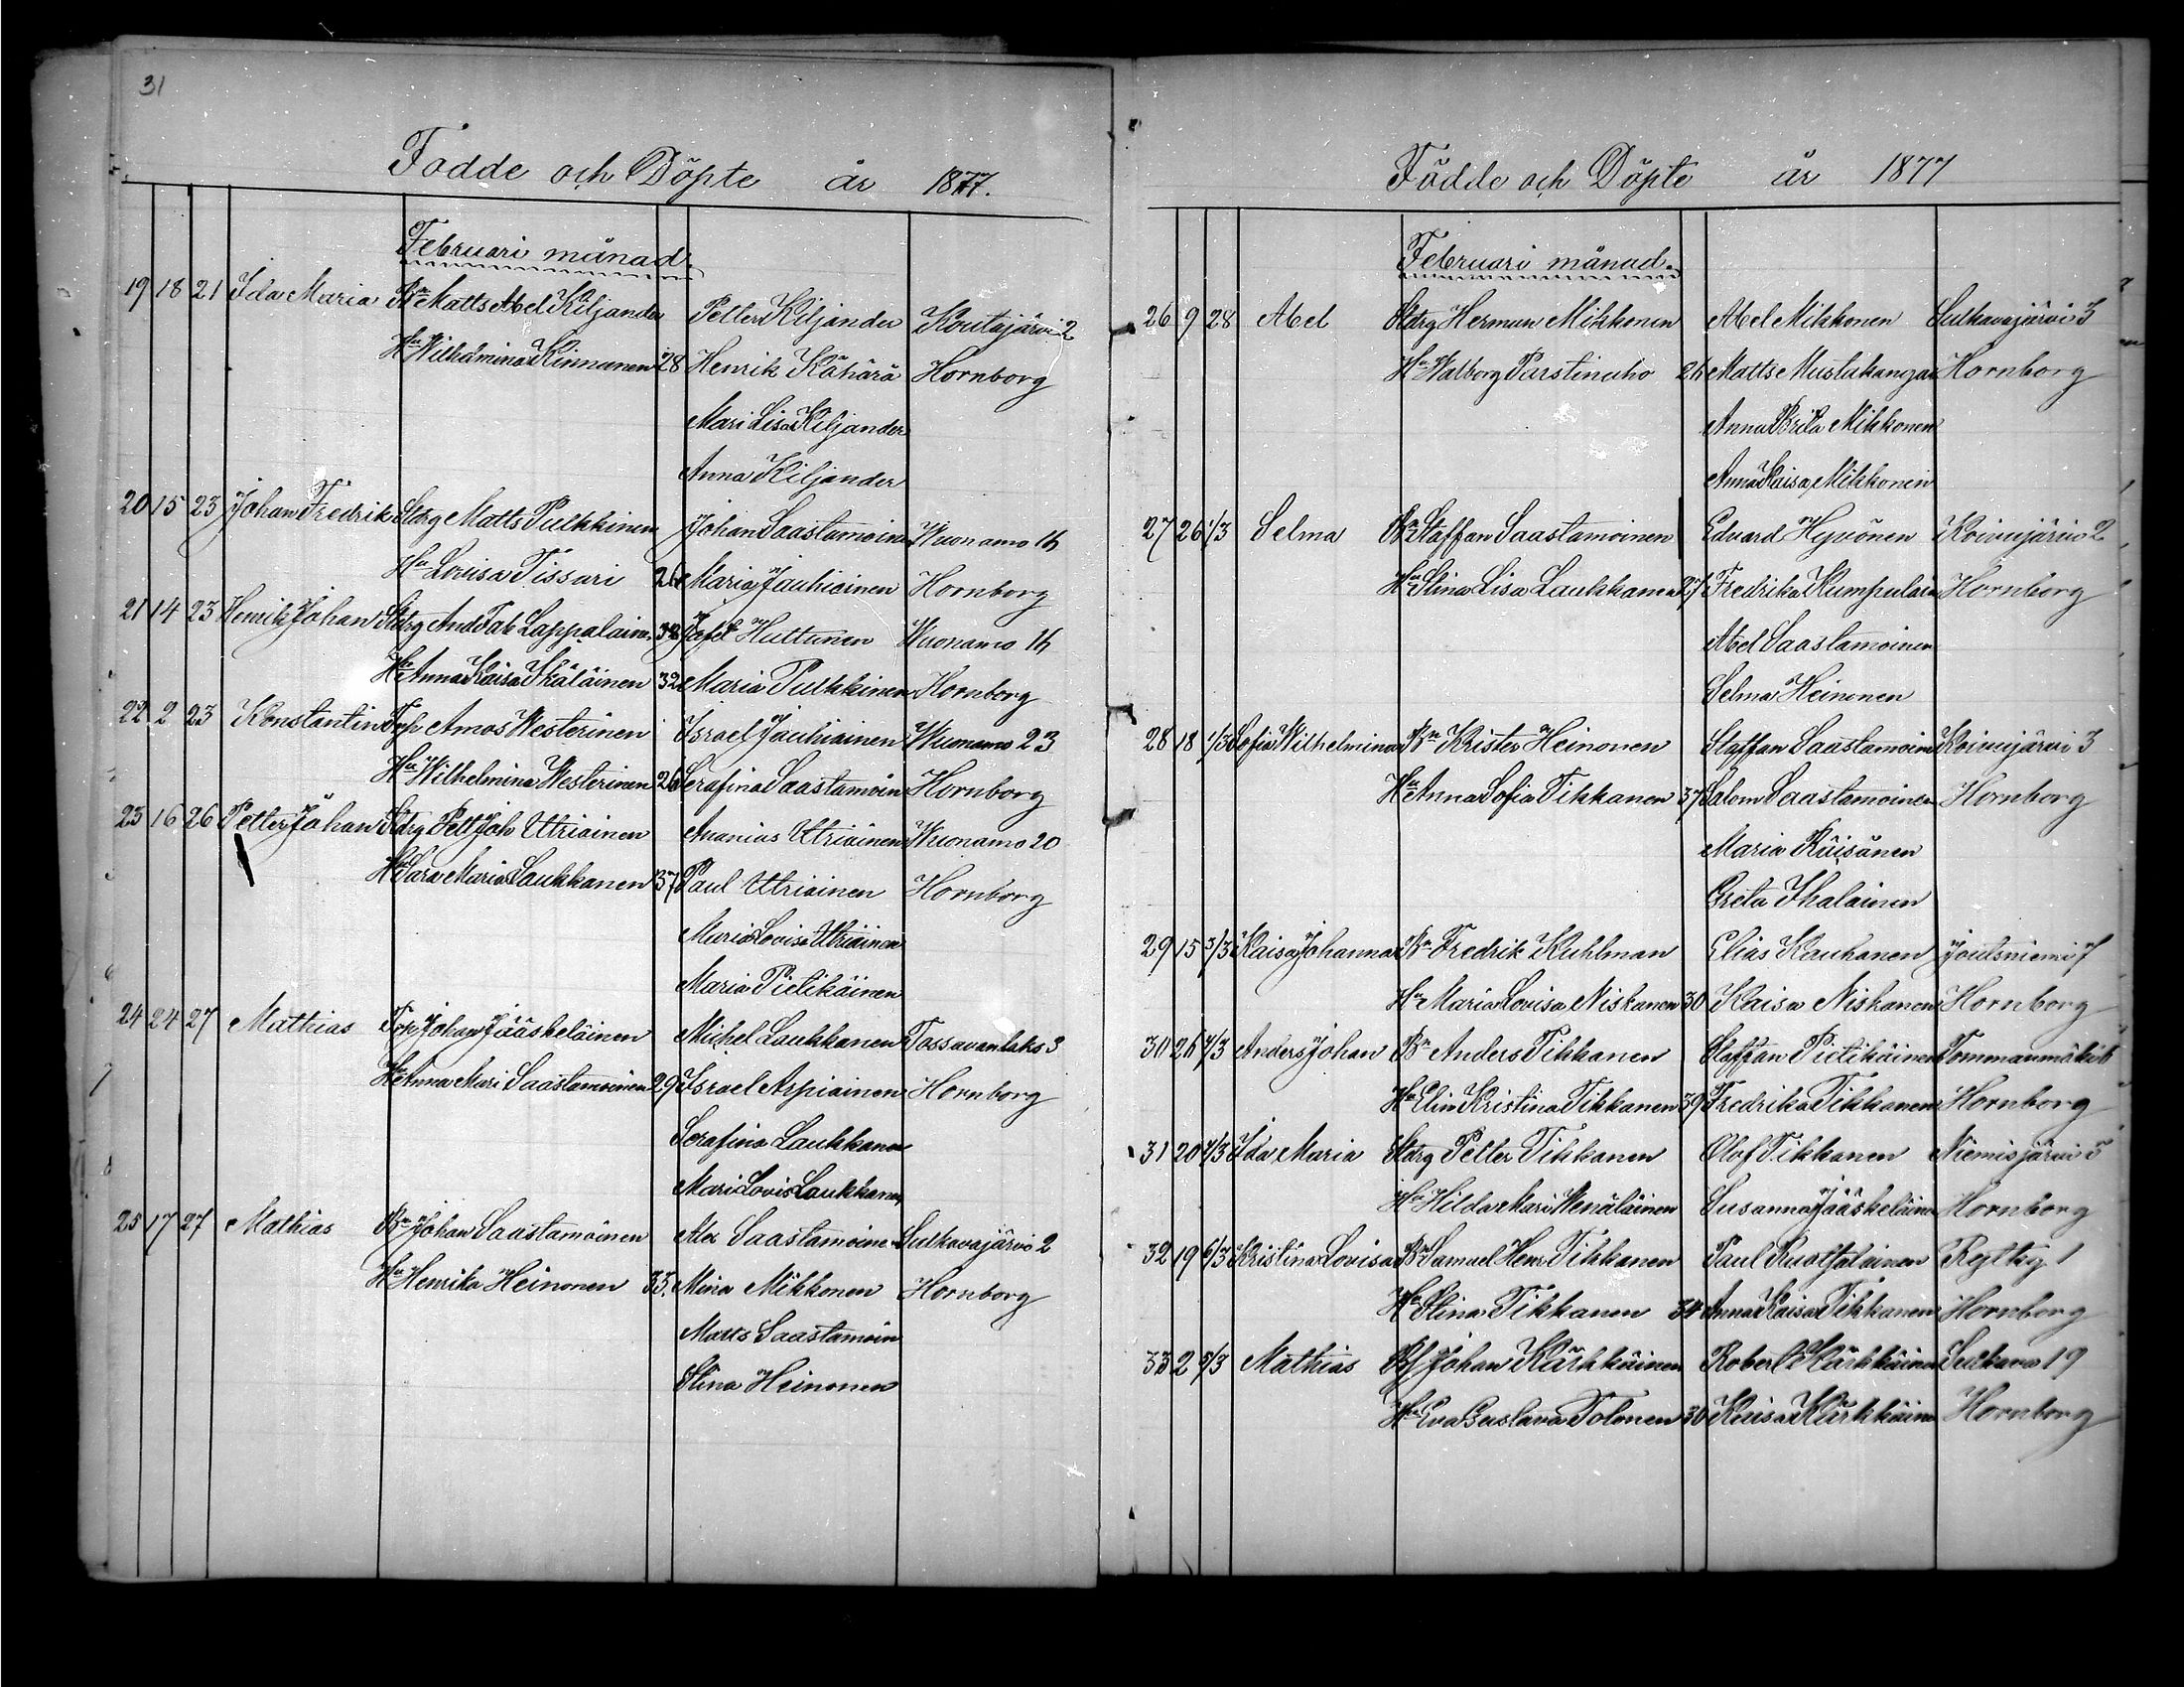 31
Fodde och Döpte år 1877.
Februari månad.
19 18 21 Ida Maria Bn Matts Abel Kiljander Petter Kiljander Koutajärvi 2
Hu Wilhelmina Kinnunen 28 Henrik Kähärä Hornborg
Mari Lisa Kiljander
Anna Kiljander
20 15 23 Johan Fredrik Stdrg Matts Pulkkinen Johan Saastamoin Wuonamo 16
Hu Lovisa Tissari 26 Maria Jauhiainen Hornborg
21 14 23 Henrik Johan Stdrg And Fab Lappalain. 38 Josef Huttunen Wuonamo 16
Hu Anna Kaisa Ikäläinen 32 Maria Pulkkinen Hornborg
22 2 23 Konstantin Torp Amos Westerinen Israel Jauhiainen Wuonamo 23
Hu Wilhelmina Westerinen 26 Serafina Saastamoin Hornborg
23 16 26 Petter Johan Stdrg Pett Joh Utriainen Ananias Utriainen Wuonamo 20
Hu Sara Maria Laukkanen 37 Paul Utriainen Hornborg
Maria Lovisa Utriainen
Maria Pietikäinen
24 24 27 Mathias Torp Johan Jääskeläinen Michel Laukkanen Tossavanlaks 3
Hu Anna Mari Saastamoinen 29 Israel Arpiainen Hornborg
Serafina Laukkanen
Mari Lovis Laukkanen
25 17 27 Mathias Bn Johan Saastamoinen Alex Saastamoine Sulkavajärvi 2
Hu Henrika Heinonen 35. Mina Mikkonen Hornborg
Matts Saastamoin
Stina Heinonen
Födde och Döpte år 1877
Februari månad.
26 9 28 Abel Stdrg Herman Mikkonen Abel Mikkonen Sulkavajärvi 3
Hu Walborg Parstinaho 26 Matts Mustakangas Hornborg
Anna Brita Mikkonen
Anna Kaisa Mikkonen
27 26 1/3 Selma Bn Staffan Saastamoinen Edvard Hyvönen Koivujärvi 2
Hu Stina Lisa Laukkanen 27 Fredrika Kumpulain Hornborg
Abel Saastamoinen
Selma Heinonen
28 18 1/3 Sofia Wilhelmina Bn Krister Heinonen Staffan Saastamoin Koivujärvi 3
Hu Anna Sofia Tikkanen 37 Salom Saastamoinen Hornborg
Maria Räisänen
Greta Ikalainen
29 15 3/3 Kaisa Johanna Bn Fredrik Kuhlman Elias Kauhanen Joutsniemi 7
Hu Maria Lovisa Niskanen 30 Kaisa Niskanen Hornborg
30 26 4/3 Anders Johan Bn Anders Tikkanen Staffan Pietikäinen Tommanmäki 6
Hu Elin Kristina Tikkanen 39 Fredrika Tikkanen Hornborg
31 20 4/3 Ida Maria Stdrg Petter Tikkanen Olof Tikkanen Niemisjärvi 5
Hu Hilda Mari Wenäläinen Susanna Jääskeläine Hornborg
32 19 6/3 Kristina Lovisa Bn Samuel Henr Tikkanen Paul Ruotsalainen 1
Hu Stina Tikkanen 34 Anna Kaisa Tikkanen Hornborg
33 2 5/3 Mathias Johan Kärkkäinen Robert Kärkkäine Sulkava 19
Hu Eva Gustava Tolonen 30 Kaisa Kärkkäine Hornborg